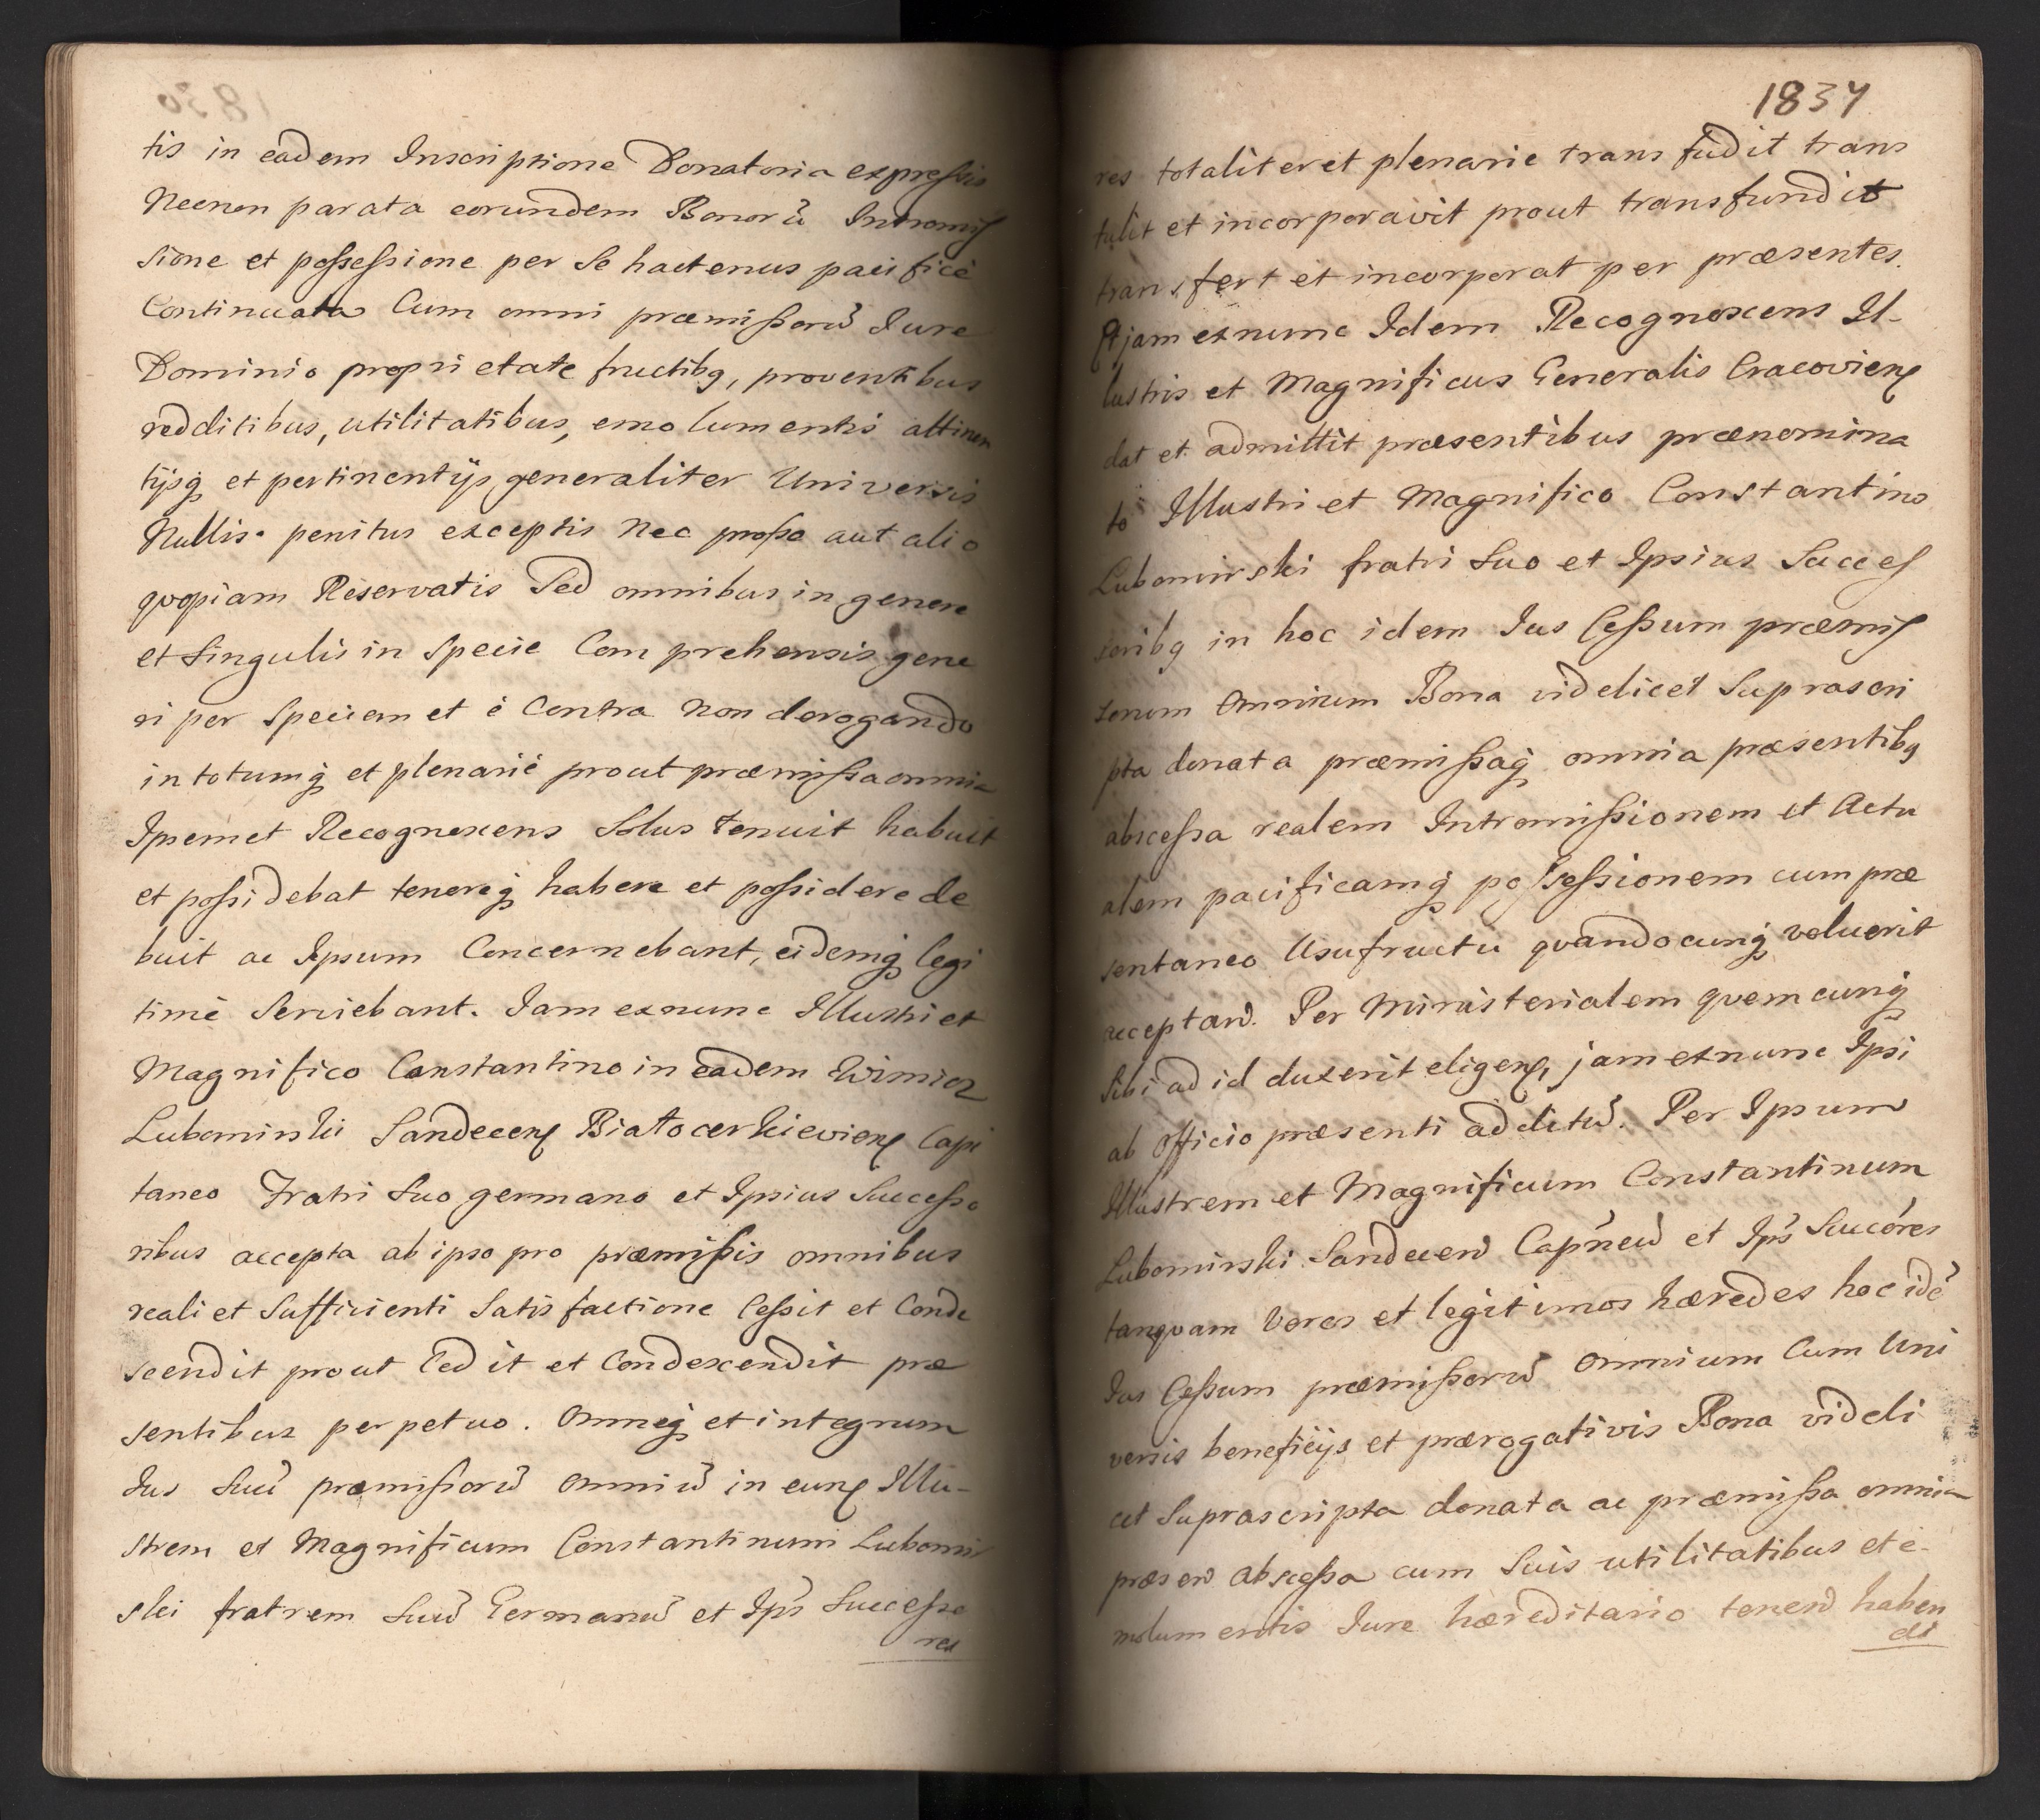 tis in eadem Inscriptione Donatoria expressis
Necnon parata eorundem Bonorū Intromis
sione et possessione per Se hactenus pacificè
Continuata Cum omni præmissorū Jure
Dominio proprietate fructibq, proventibus
redditibus, utilitatibus, emolumentis attinen
tijsq et pertinentijs generaliter Universis
Nullis penitus exceptis Nec pro se aut alio
qvopiam Reservatis Sed omnibus in genere
et Singulis in Specie Comprehensis gene
ri per Speciem et è Contra Non derogando
in totumq et plenariè prout præmissa omnia
Ipsemet Recognoscens Solus tenuit habuit
et possidebat tenereq habere et possidere de
buit ac Ipsum Concernebant, eidemq legi
timè Serviebant. Jam exnunc Illustri et
Magnifico Constantino in eadem Wisnicz
Lubomirski Sandecen Białocerkievien Capi
taneo Fratri Suo germano et Ipsius Successo
ribus accepta ab ipso pro præmissis omnibus
reali et Sufficienti Satisfactione Cessit et Conde
scendit prout Cedit et Condescendit præ
sentibus perpetuo. Omneq et integrum
Jus Suū præmissorū omniū in eun Illu-
strem et Magnificum Constantinum Lubomir
ski fratrem Suū Germanū et Ips Successo
res
1837
res totaliter et plenarie transfudit trans
tulit et incorporavit prout transfundit
transfert et incorporat per præsentes.
Et jam exnunc Idem Recognoscens Il-
lustris et Magnificus Generalis Cracovien
dat et admittit præsentibus prænomina
to Illustri et Magnifico Constantino
Lubomirski fratri Suo et Ipsius Succes
soribq in hoc idem Jus Cessum præmis
sorum Omnium Bona videlicet Suprascri
pta donata præmissaq omnia præsentibq
abscessa realem Intromissionem et Actu
alem pacificamq possessionem cum præ
sentaneo Usufructu qvandocunq voluerit
acceptan. Per Ministerialem qvemcunq
Sibi ad id duxerit eligen, jam exnunc Ipsi
ab officio præsenti additū. Per Ipsum
Illustrem et Magnificum Constantinum
Lubomirski Sandecen Capneū et Ips Succores
tanqvam Veros et legitimos hæredes hoc idē
Jus Cessum præmissorū Omnium Cum Uni
versis beneficijs et prærogativis Bona videli
cet Suprascripta donata ac præmissa omnia
præsen abscessa cum Suis utilitatibus et e-
molumentis Jure hæreditario tenen haben
di